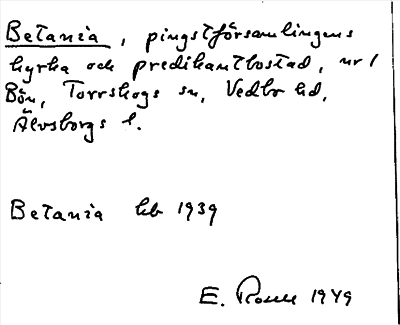 Betania, pingstförsamlingens
kyrka och predikantbostad, nr 1
Bön, Torrskogs sn, Vedbo hd,
Älvsborgs l.
Betania hb 1939
E. 1949